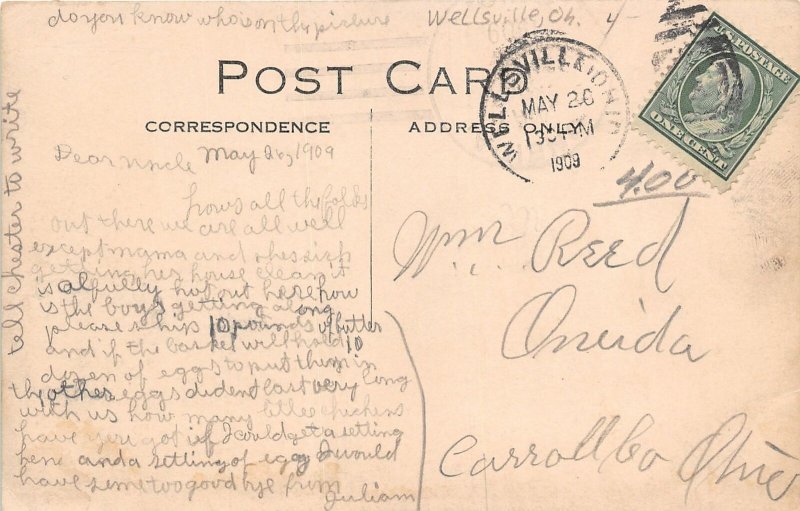 do you know who is on the picture
Wellsville, Oh.
4
POST CARD
CORRESPONDENCE
ADDRESS ONLY
WELLSVILLE, OHIO
MAY 26
130PM
1909
U.S. POSTAGE
ONE CENT
4.00
tell chester to write
Dear uncle May 26, 1909
hows all the folks
out there we are all well
except mama and shes sick
getting her house clean it
is alfully hot out here how
is the boys getting along
please ship 10 pounds of butter
and if the basket will hold 10
dozen of eggs to put them in
the other eggs dident last very long
with us how many little chickens
have you got if I could get a setting
hene and a setting of egg I would
have some too good bye from
Juliam
Wm Reed
Oneida
Carroll Co Ohio